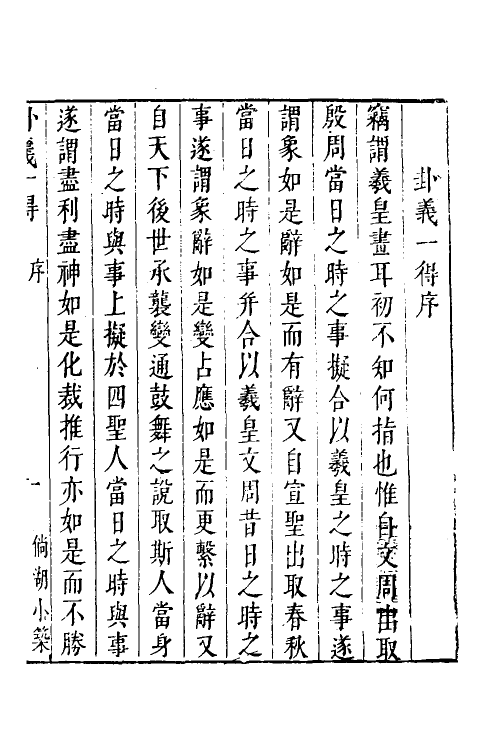 卦義一得序
竊謂羲皇畫耳初不知何指也惟自文周出取
殷周當日之時之事擬合以羲皇之時之事遂
謂象如是辭如是而有辭又自宣聖出取春秋
當日之時之事并合以羲皇文周昔日之時之
事遂謂象辭如是變占應如是而更繫以辭又
自天下後世承襲變通鼓舞之說取斯人當身
當日之時與事上擬於四聖人當日之時與事
遂謂盡利盡神如是化裁推行亦如是而不勝
卦義一得 序 一 倘湖小築